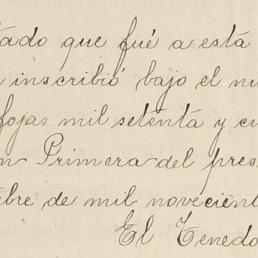 tado que fué a está
inscribió bajo el nu
fojas mil setenta y cu
n Primera del pres
bre de mil novecient
El Tenedo